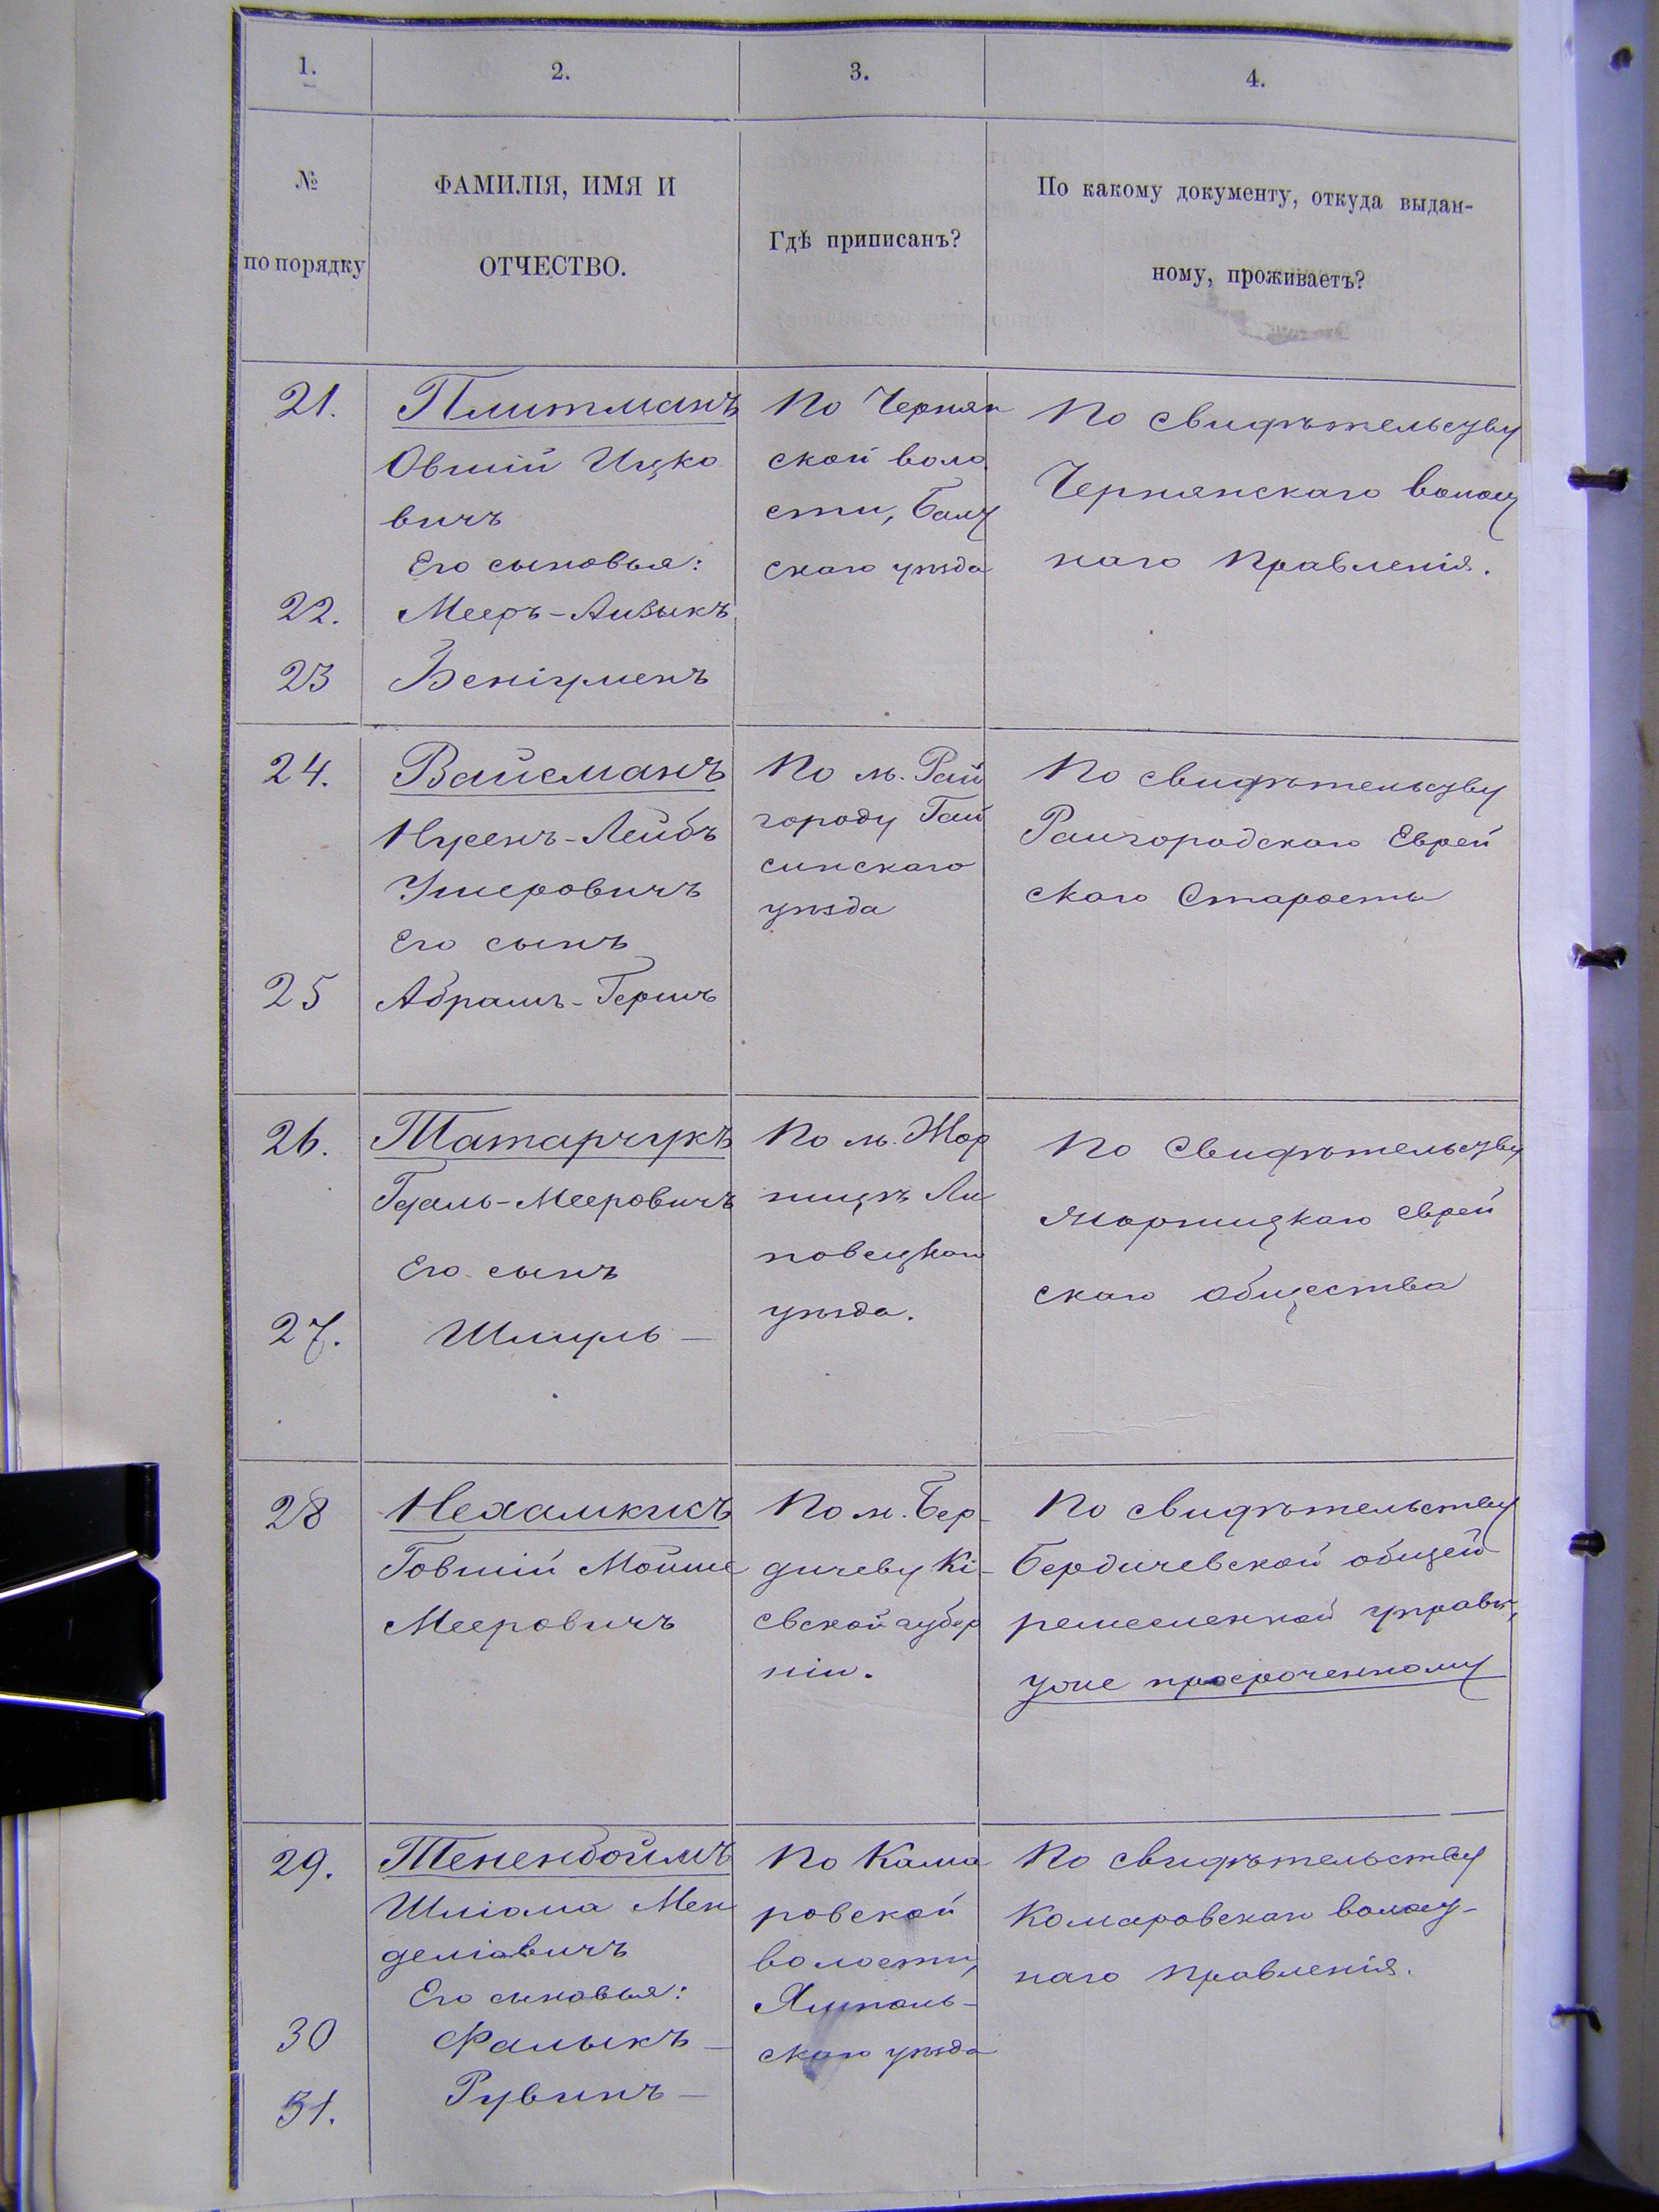 1. 2. 3. 4.
№ по порядку
ФАМИЛІЯ, ИМЯ И
ОТЧЕСТВО.
Гдѣ приписанъ?
По какому документу, откуда выдан-
ному, проживаетъ?
21.
Плитманъ
Овшій Ицко
вичъ
Его сыновья:
22.
Мееръ-Аизыкъ
23
Беніуменъ
По Чернян
ской воло
сти, Балт
скаго уѣзда
По свидѣтельству
Чернянскаго волост
наго Правленія.
24.
Вайсманъ
Нусенъ-Лейбъ
Ушеровичъ
Его сынъ
25
Абрамъ-Гершъ
По м. Рай
городу Гай
синскаго
уѣзда
По свидѣтельству
Райгородскаго Еврей
скаго Старосты
26.
Татарчукъ
Гдаль-Мееровичъ
Его сынъ
27.
Шмуль —
По м. Жор
нищѣ Ли
повецкаго
уѣзда.
По Свидѣтельству
Жорнищкаго еврей
скаго общества
28
Нехамкисъ
Говшій Мойше
Мееровичъ
По м. Бер-
дичеву Кі-
евской губер
ніи.
По свидѣтельству
Бердичевской общей
ремесленной управы,
уже просроченному
29.
Тененбоймъ
Шліома Мен
деліовичъ
Его сыновья:
30
Фалыкъ —
31.
Рувинъ —
По Кома
ровской
волости,
Ямполь-
скаго уѣзда
По свидѣтельству
Комаровскаго волост-
наго Правленія.